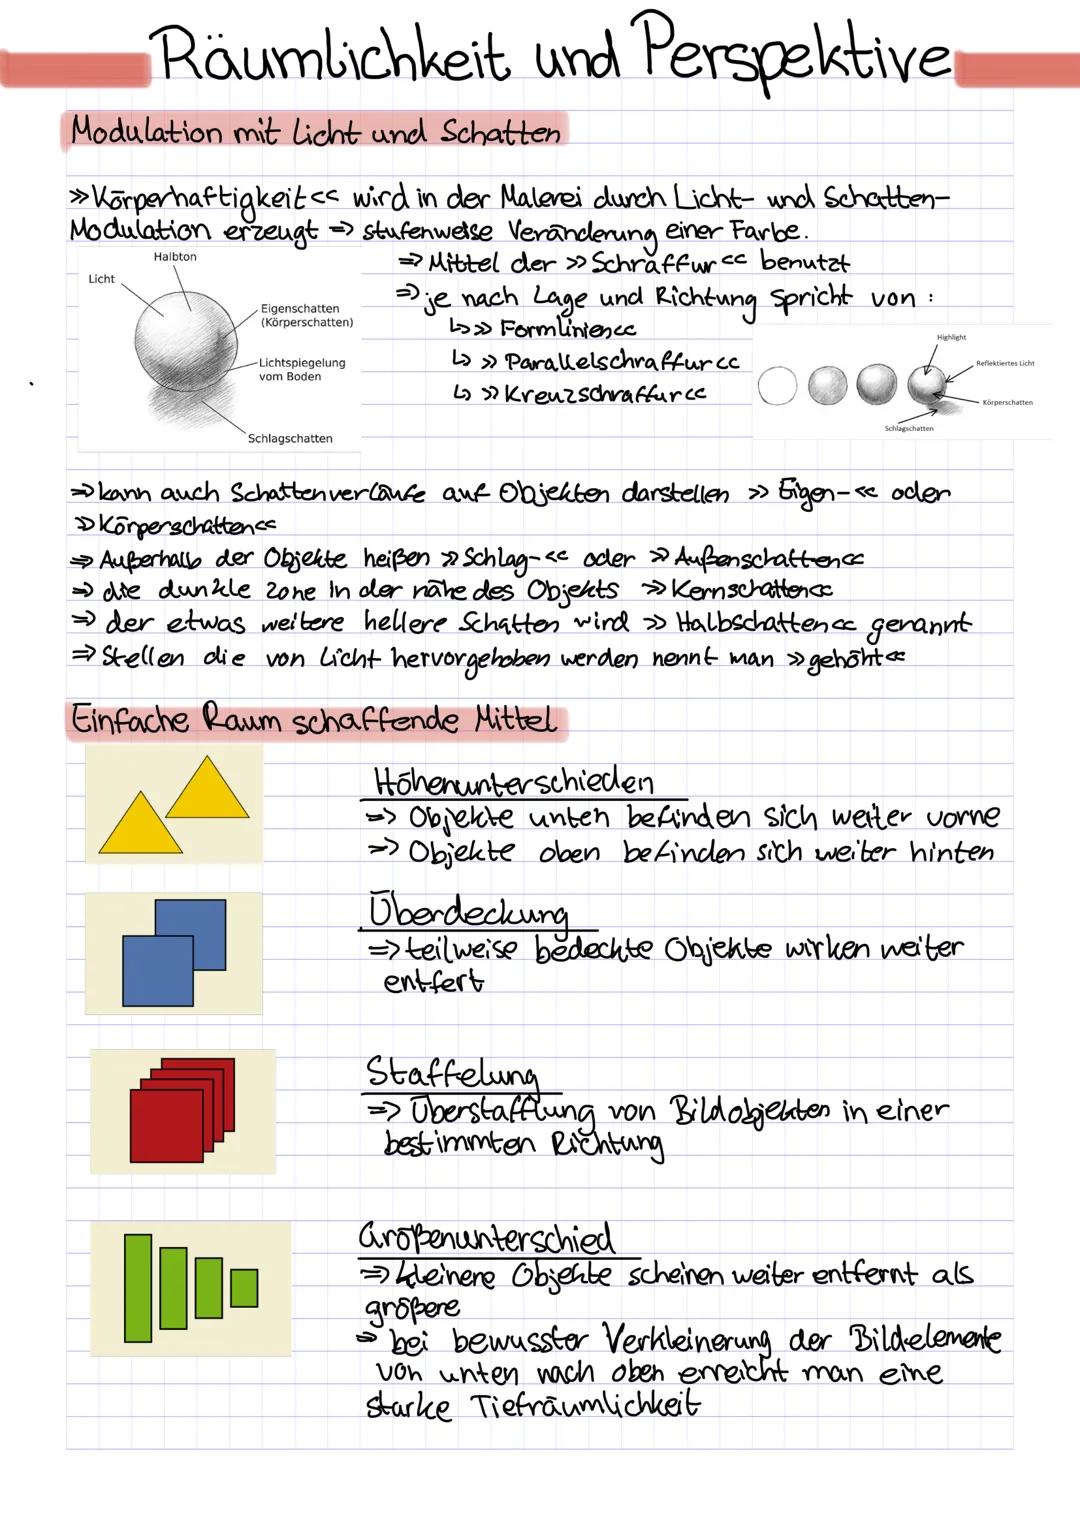 Räumlichkeit und Perspektive
Modulation mit Licht und Schatten
»Körperhaftigkeit« wird in der Malerei durch Licht- und Schatten-
Modulation erzeugt => stufenweise Veränderung einer Farbe.
=> Mittel der »Schraffur« benutzt
=> je nach Lage und Richtung spricht von :
↳ »Formlinien«
↳ »Parallelschraffur«
↳ »Kreuzschraffur«
Halbton
Licht
Eigenschatten
(Körperschatten)
Lichtspiegelung
vom Boden
Schlagschatten
Highlight
Reflektiertes Licht
Körperschatten
Schlagschatten
=> kann auch Schattenverläufe auf Objekten darstellen »Eigen-« oder
»Körperschatten«
=> Außerhalb der Objekte heißen »Schlag-« oder »Außenschatten«
=> die dunkle Zone in der nähe des Objekts »Kernschatten«
=> der etwas weitere hellere Schatten wird »Halbschatten« genannt
=> Stellen die von Licht hervorgehoben werden nennt man »gehöht«
Einfache Raum schaffende Mittel
Höhenunterschieden
=> Objekte unten befinden sich weiter vorne
=> Objekte oben befinden sich weiter hinten
Überdeckung
=> teilweise bedeckte Objekte wirken weiter
entfert
Staffelung
=> Überstafflung von Bildobjekten in einer
bestimmten Richtung
Größenunterschied
=> kleinere Objekte scheinen weiter entfernt als
größere
=> bei bewusster Verkleinerung der Bildelemente
von unten nach oben erreicht man eine
starke Tiefräumlichkeit